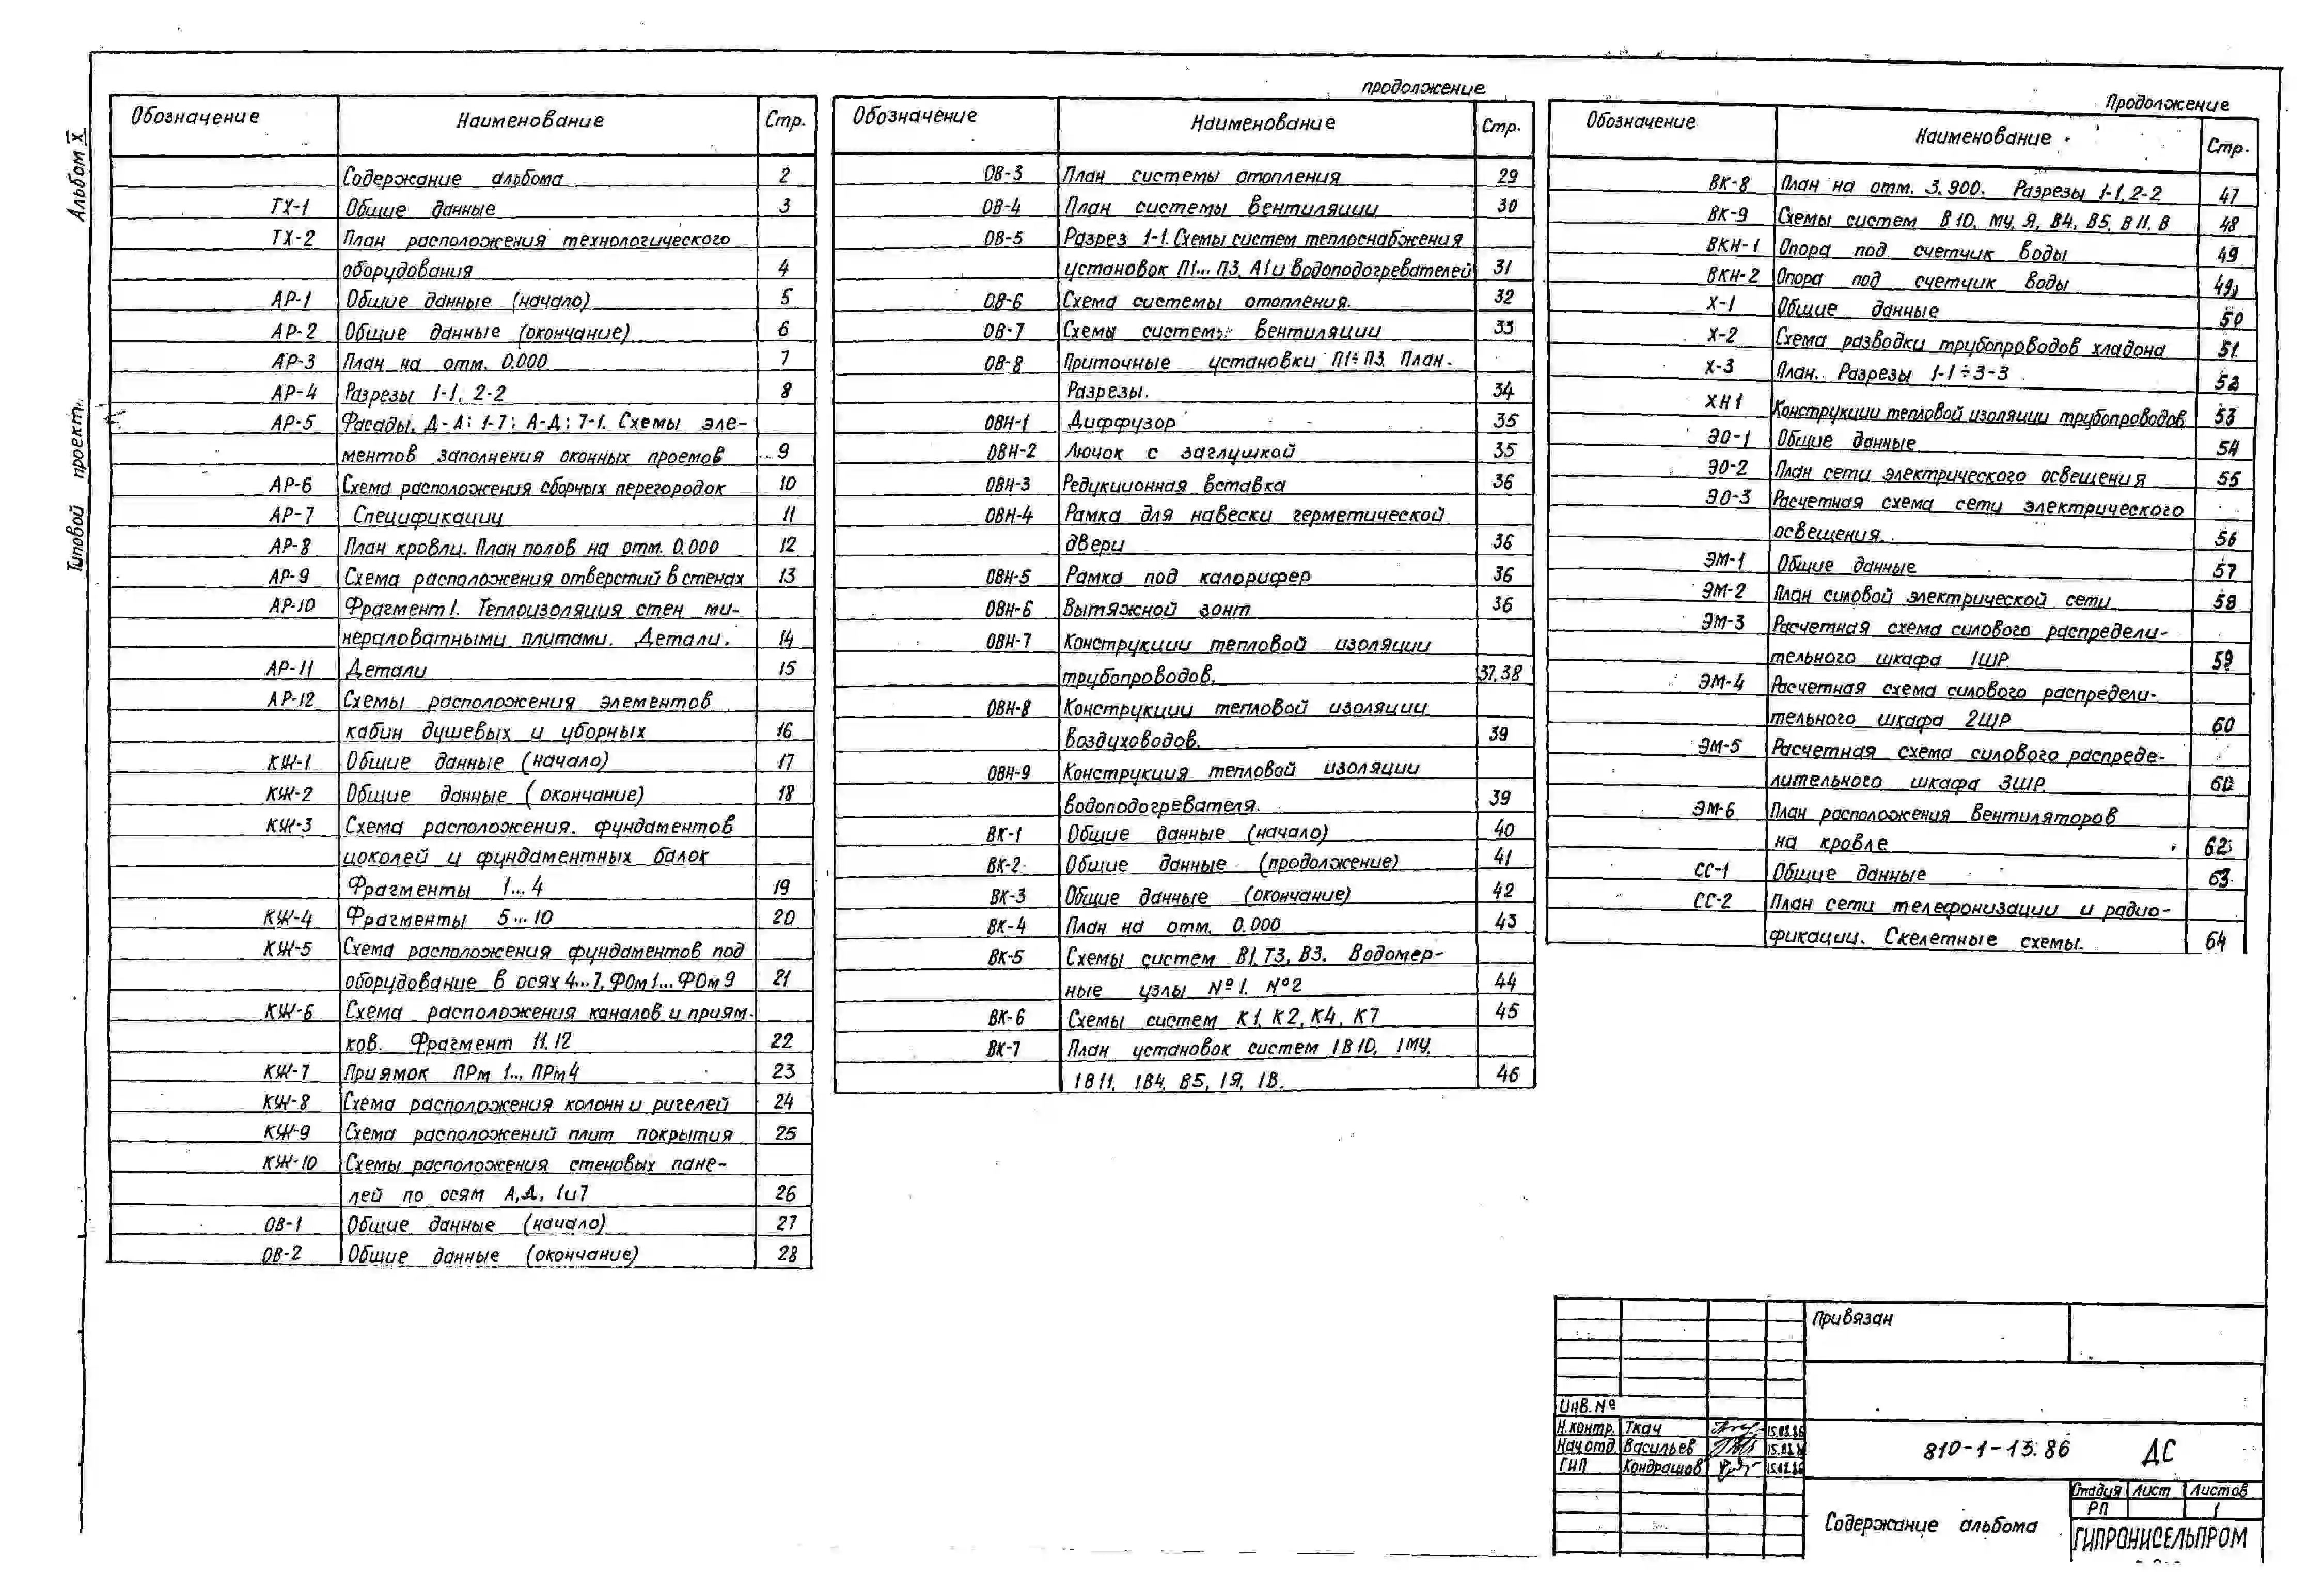 Альбом X
Типовой проект
Обозначение Наименование Стр.
Содержание альбома 2
ТХ-1 Общие данные 3
ТХ-2 План расположения технологического
оборудования 4
АР-1 Общие данные (начало) 5
АР-2 Общие данные (окончание) 6
АР-3 План на отм. 0.000 7
АР-4 Разрезы 1-1, 2-2 8
АР-5 Фасады. Д-А; 1-7; А-Д; 7-1. Схемы эле-
ментов заполнения оконных проемов 9
АР-6 Схема расположения сборных перегородок 10
АР-7 Спецификации 11
АР-8 План кровли. План полов на отм. 0.000 12
АР-9 Схема расположения отверстий в стенах 13
АР-10 Фрагмент 1. Теплоизоляция стен ми-
нераловатными плитами. Детали. 14
АР-11 Детали 15
АР-12 Схемы расположения элементов
кабин душевых и уборных 16
КЖ-1 Общие данные (начало) 17
КЖ-2 Общие данные (окончание) 18
КЖ-3 Схема расположения. фундаментов
цоколей и фундаментных балок
Фрагменты 1...4 19
КЖ-4 Фрагменты 5...10 20
КЖ-5 Схема расположения фундаментов под
оборудование в осях 4...7, ФОм1...ФОм9 21
КЖ-6 Схема расположения каналов и приям-
ков. Фрагмент 11.12 22
КЖ-7 Приямок ПРм 1... ПРм4 23
КЖ-8 Схема расположения колонн и ригелей 24
КЖ-9 Схема расположений плит покрытия 25
КЖ-10 Схемы расположения стеновых пане-
лей по осям А,Д, 1и7 26
ОВ-1 Общие данные (начало) 27
ОВ-2 Общие данные (окончание) 28
продолжение
Обозначение Наименование Стр.
ОВ-3 План системы отопления 29
ОВ-4 План системы вентиляции 30
ОВ-5 Разрез 1-1. Схемы систем теплоснабжения
установок П1... П3, А1и водоподогревателей 31
ОВ-6 Схема системы отопления. 32
ОВ-7 Схемы систем: вентиляции 33
ОВ-8 Приточные установки П1÷П3. План.
Разрезы. 34
ОВН-1 Диффузор 35
ОВН-2 Лючок с заглушкой 35
ОВН-3 Редукционная вставка 36
ОВН-4 Рамка для навески герметической
двери 36
ОВН-5 Рамка под калорифер 36
ОВН-6 Вытяжной зонт 36
ОВН-7 Конструкции тепловой изоляции
трубопроводов. 37,38
ОВН-8 Конструкции тепловой изоляции
воздуховодов. 39
ОВН-9 Конструкция тепловой изоляции
водоподогревателя. 39
ВК-1 Общие данные (начало) 40
ВК-2 Общие данные (продолжение) 41
ВК-3 Общие данные (окончание) 42
ВК-4 План на отм. 0.000 43
ВК-5 Схемы систем В1, Т3, В3. Водомер-
ные узлы №1. №2 44
ВК-6 Схемы систем К1, К2, К4, К7 45
ВК-7 План установок систем 1В10, 1МУ,
1В11, 1В4, В5, 1Я, 1В. 46
Продолжение
Обозначение Наименование Стр.
ВК-8 План на отм. 3.900. Разрезы 1-1, 2-2 47
ВК-9 Схемы систем В10, МУ, Я, В4, В5, В11, В 48
ВКН-1 Опора под счетчик воды 49
ВКН-2 Опора под счетчик воды 49
Х-1 Общие данные 50
Х-2 Схема разводки трубопроводов хладона 51
Х-3 План. Разрезы 1-1÷3-3 52
ХН1 Конструкции тепловой изоляции трубопроводов 53
ЭО-1 Общие данные 54
ЭО-2 План сети электрического освещения 55
ЭО-3 Расчетная схема сети электрического
освещения. 56
ЭМ-1 Общие данные 57
ЭМ-2 План силовой электрической сети 58
ЭМ-3 Расчетная схема силового распредели-
тельного шкафа 1ШР 59
ЭМ-4 Расчетная схема силового распредели-
тельного шкафа 2ШР 60
ЭМ-5 Расчетная схема силового распреде-
лительного шкафа 3ШР.
ЭМ-6 План расположения вентиляторов
на кровле 62
СС-1 Общие данные 63
СС-2 План сети телефонизации и радио-
фикации. Скелетные схемы. 64
Привязан
Инв. №
Н.контр. Ткач 15.02.86
Нач отд. Васильев 15.02.86
ГИП Кондрашов 15.02.86
810-1-13.86 ДС
Содержание альбома
Стадия Лист Листов
РП 1
ГИПРОНИСЕЛЬПРОМ